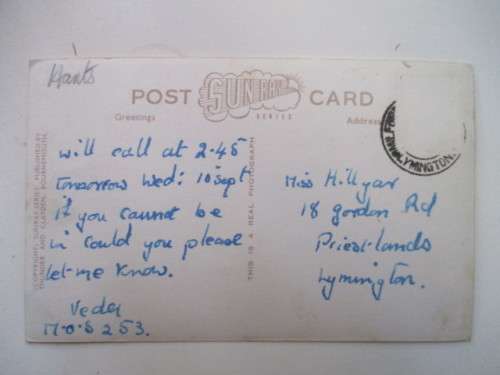 Hants
POST SUNRAY CARD
SERIES
Greetings
Address
will call at 2.45
tomorrow Wed: 10 Sept
if you cannot be
in could you please
let me know.
Veda
M.O.S 253.
Miss Hillyar
18 gordon Rd
Priestlands
Lymington.
THIS IS A REAL PHOTOGRAPH
COPYRIGHT, SUNRAY SERIES, PUBLISHED BY
BOURNEMOUTH
LYMINGTON